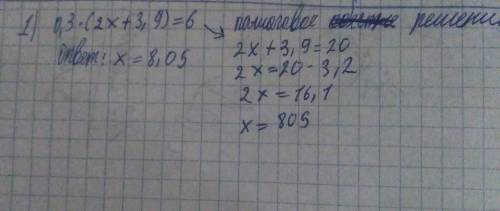 1) 0,3·(2x+3,9)=6 ↘ пошаговое решени
Ответ: x = 8,05
2x+3,9=20
2x=20-3,2
2x=16,1
x=805